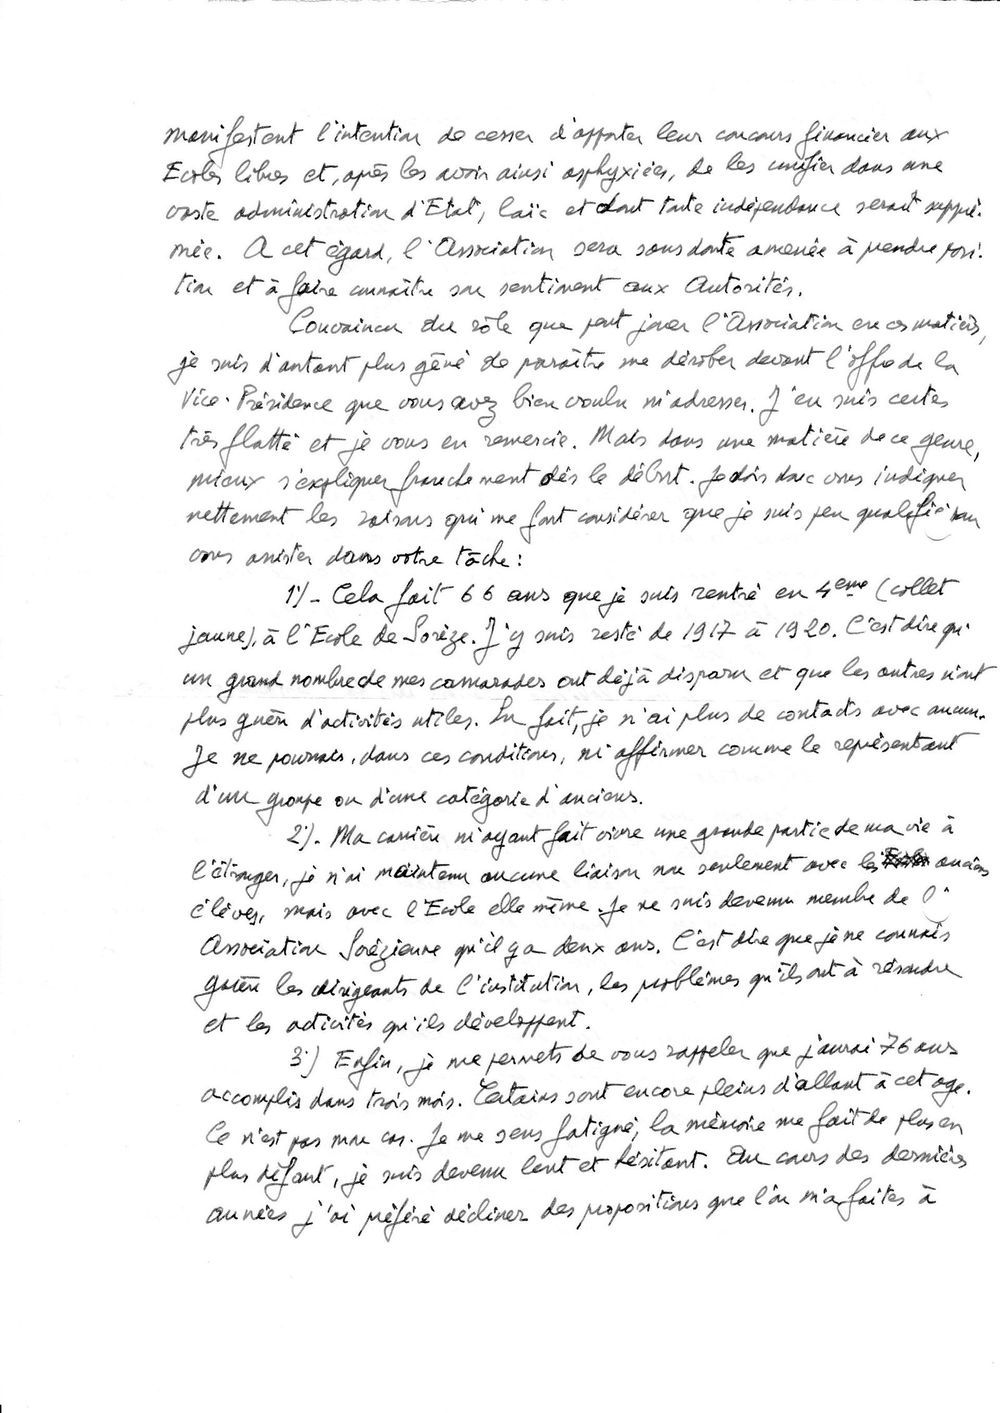 manifestent l'intention de cesser d'apporter leur concours financier aux
Ecoles libres et, après les avoir ainsi asphyxiées, de les unifier dans une
vaste administration d'Etat, laïc et dont toute indépendance serait suppri-
mée. A cet égard, l'Association sera sans doute amenée à prendre posi-
tion et à faire connaître son sentiment aux Autorités.
Convaincu du rôle que peut jouer l'Association en ces matières,
je suis d'autant plus gêné de paraître me dérober devant l'offre de la
Vice-Présidence que vous avez bien voulu m'adresser. J'en suis certes
très flatté et je vous en remercie. Mais dans une matière de ce genre,
mieux s'expliquer franchement dès le début. Je dois donc vous indiquer
nettement les raisons qui me font considérer que je suis peu qualifié pour
vous assister dans votre tâche :
1)- Cela fait 66 ans que je suis rentré en 4ème (collet
jaune), à l'Ecole de Sorèze. J'y suis resté de 1917 à 1920. C'est dire qu'
un grand nombre de mes camarades ont déjà disparu et que les autres n'ont
plus guère d'activités utiles. En fait, je n'ai plus de contacts avec aucun.
Je ne pourrais, dans ces conditions, m'affirmer comme le représentant
d'un groupe ou d'une catégorie d'anciens.
2). Ma carrière m'ayant fait vivre une grande partie de ma vie à
l'étranger, je n'ai maintenu aucune liaison non seulement avec les anciens
élèves, mais avec l'Ecole elle même. Je ne suis devenu membre de l'
Association Sorézienne qu'il y a deux ans. C'est dire que je ne connais
guère les dirigeants de l'institution, les problèmes qu'ils ont à résoudre
et les activités qu'ils développent.
3) Enfin, je me permets de vous rappeler que j'aurai 76 ans
accomplis dans trois mois. Certains sont encore pleins d'allant à cet age.
Ce n'est pas mon cas. Je me sens fatigué, la mémoire me fait de plus en
plus défaut, je suis devenu lent et hésitant. Au cours des dernières
années j'ai préféré décliner des propositions que l'on m'a faites à